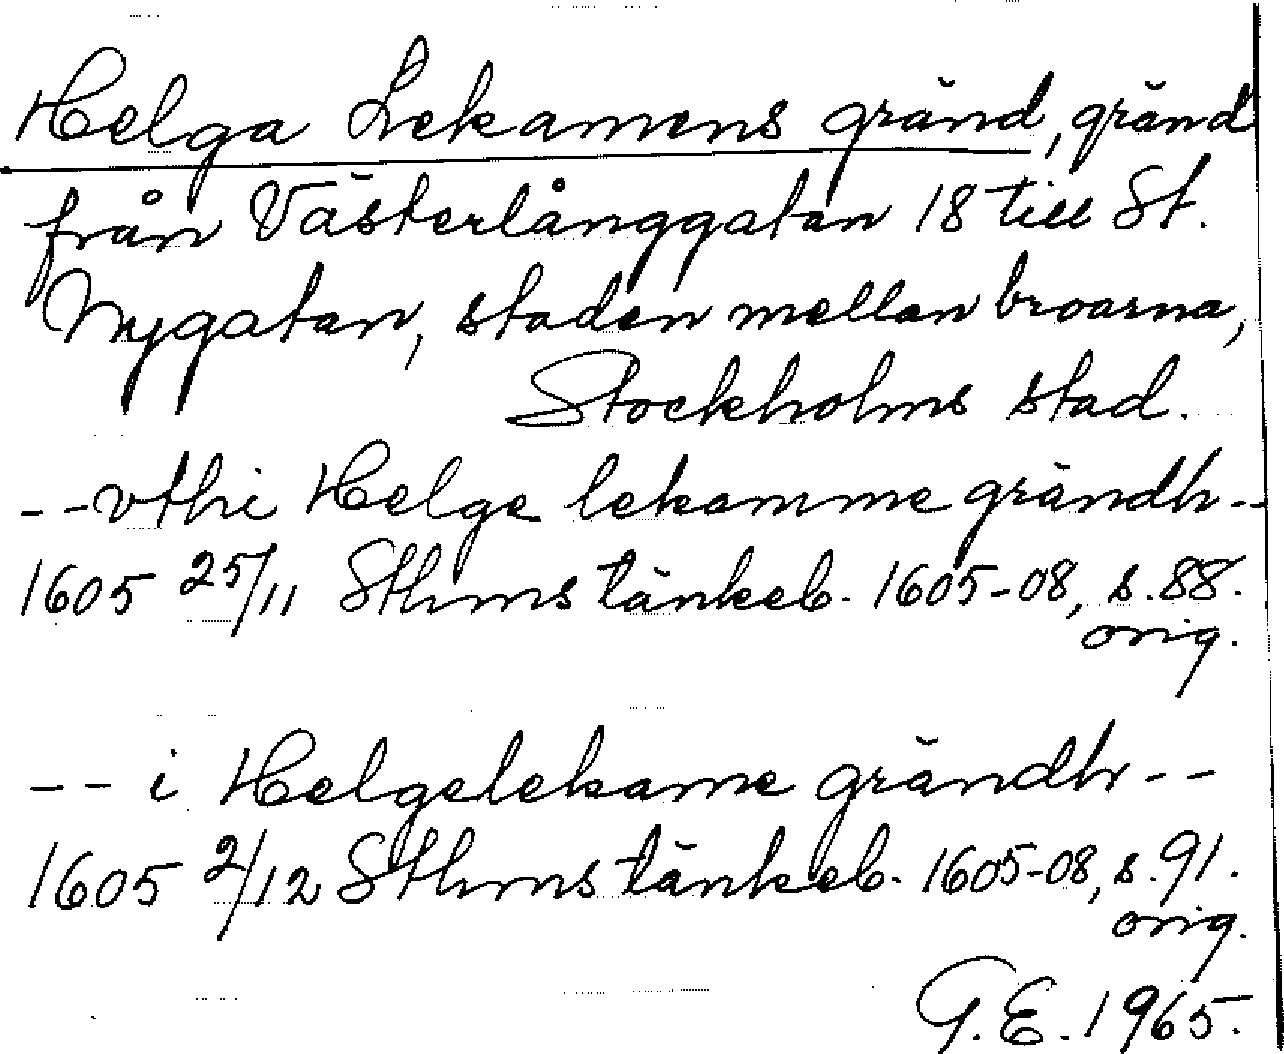 Helga Lekamens gränd, gränd
från Västerlånggatan 18 till St.
Nygatan, staden mellan broarna,
Stockholms stad.
--vthi Helge lekamme grändh--
1605 25/11 Sthms tänkeb. 1605-08, s. 88.
orig.
-- i Helgelekame grändh--
1605 2/12 Sthms tänkeb. 1605-08, s. 91.
orig.
G.E. 1965.